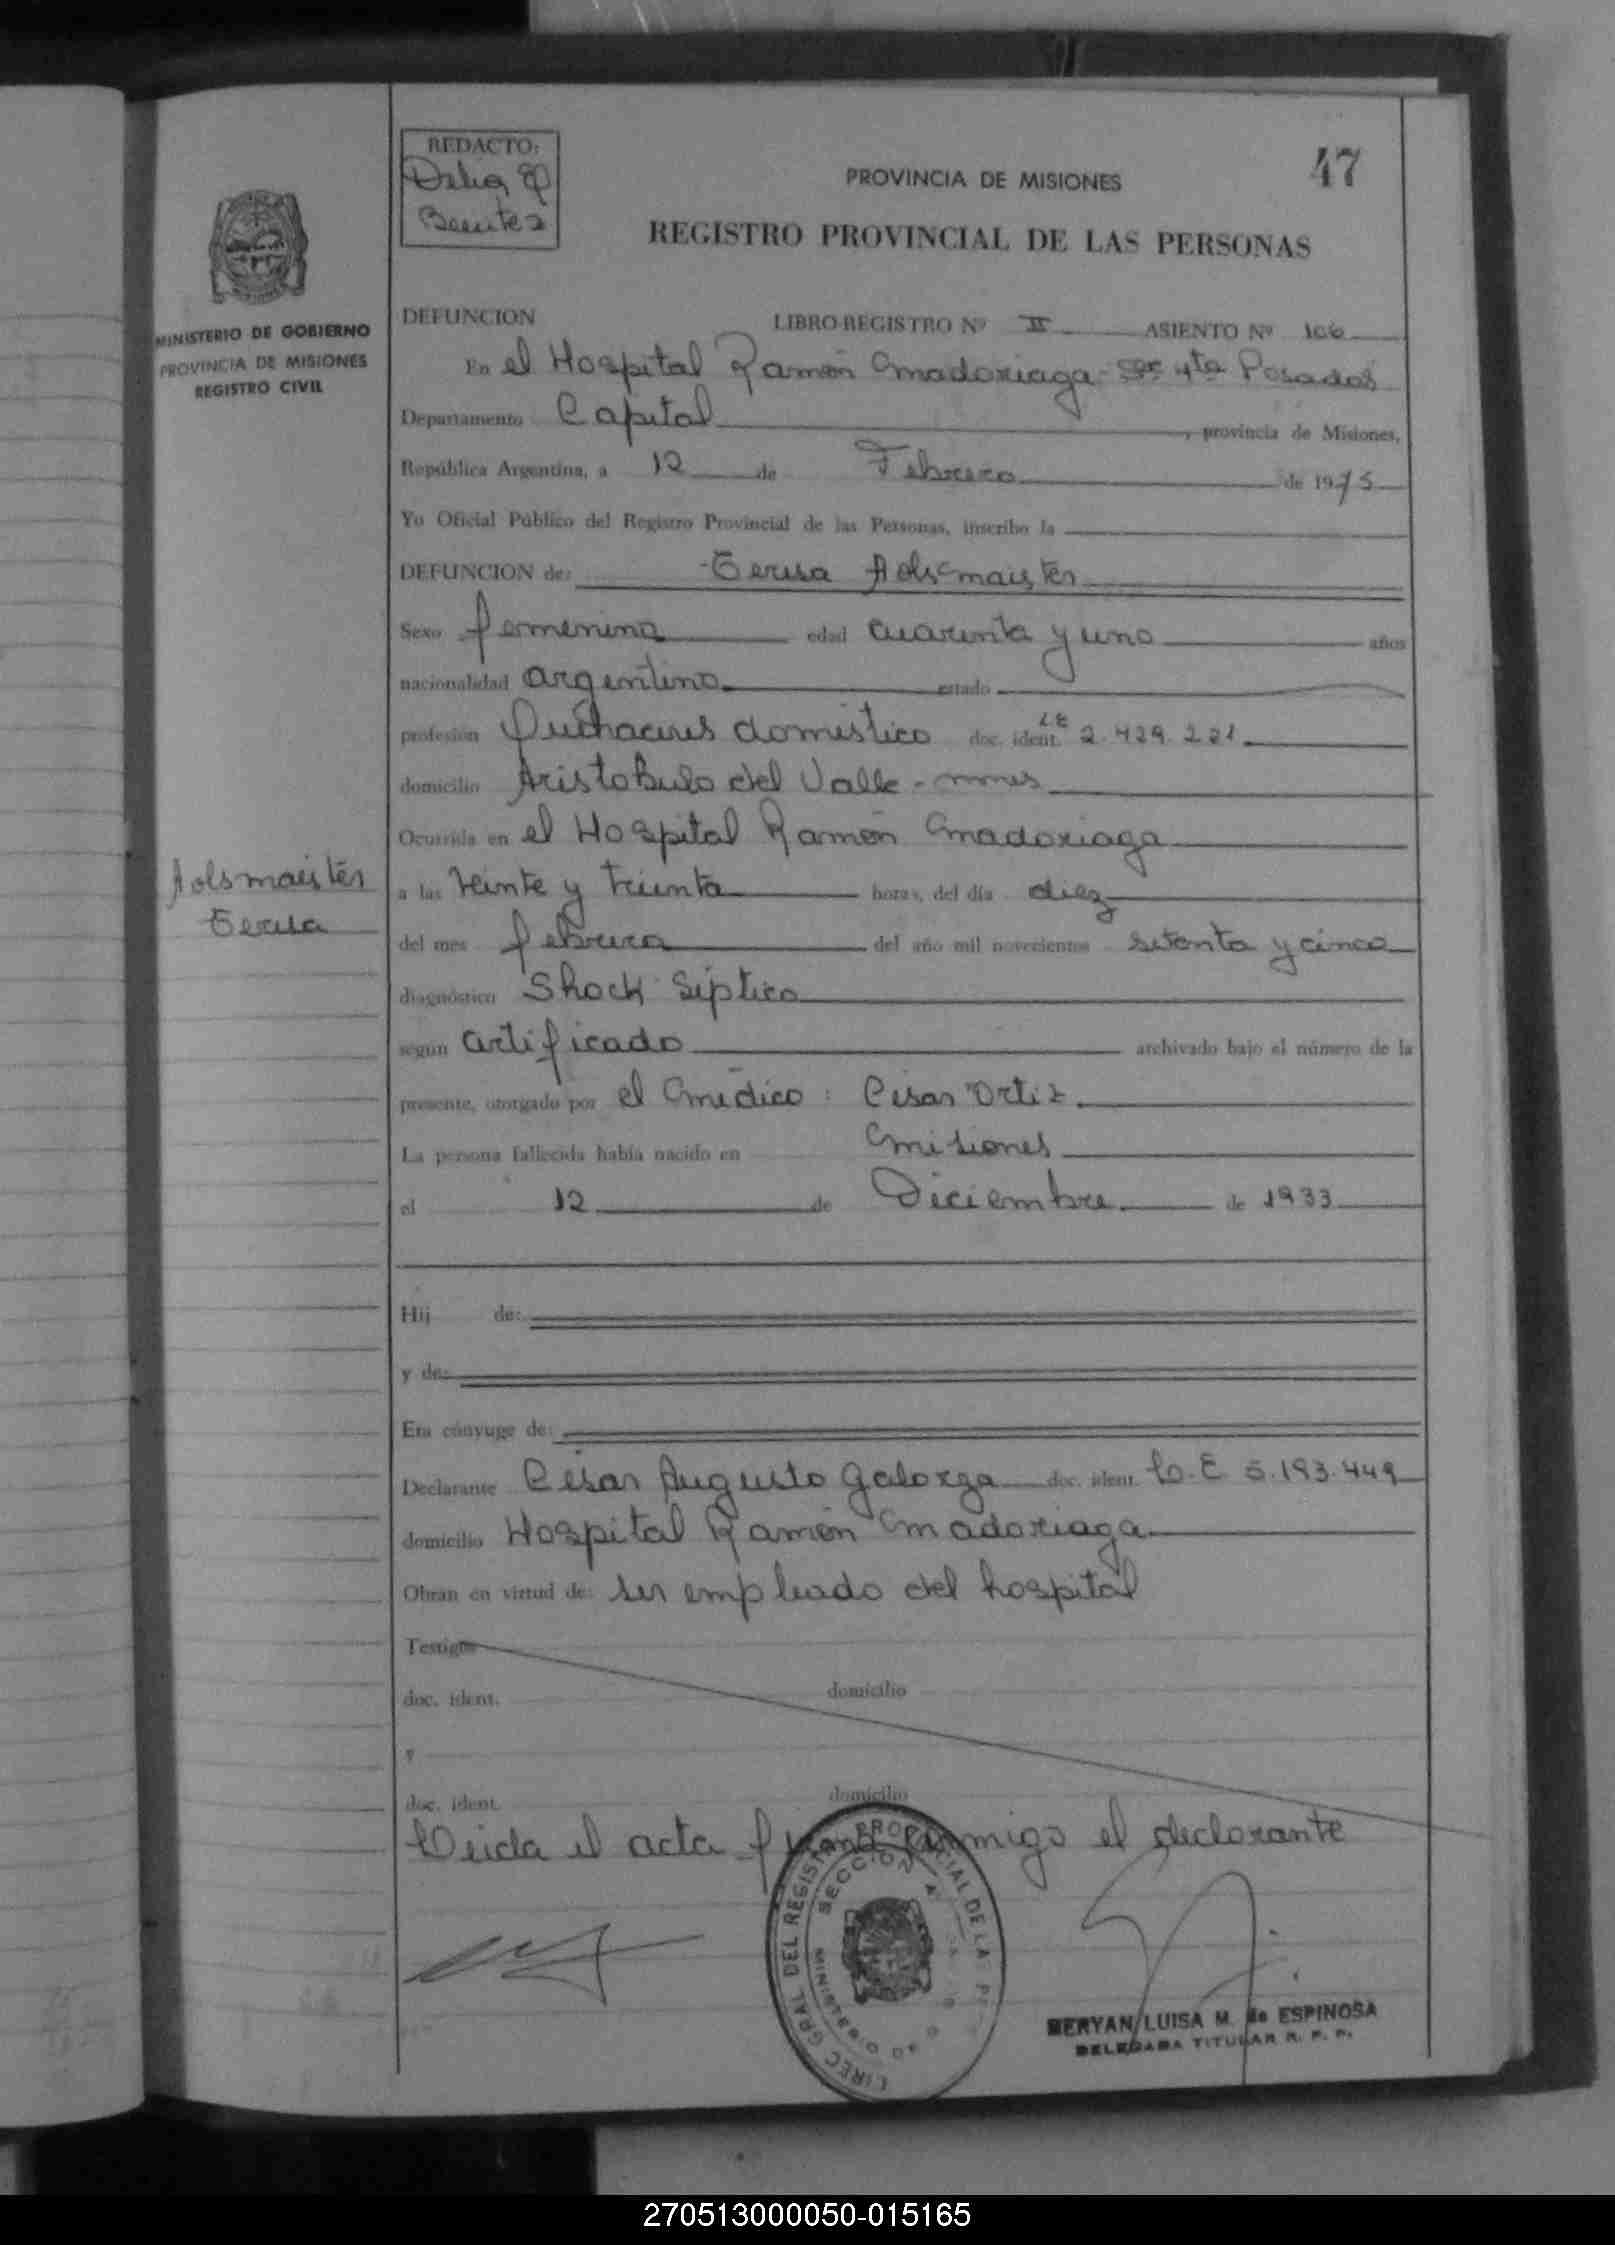 REDACTO:
Delia
Benitez
47
PROVINCIA DE MISIONES
REGISTRO PROVINCIAL DE LAS PERSONAS
MINISTERIO DE GOBIERNO
PROVINCIA DE MISIONES
REGISTRO CIVIL
DEFUNCION LIBRO-REGISTRO Nº II ASIENTO Nº 106
En el Hospital Ramón Madoriaga - Sec 4ta Posadas
Departamento Capital, provincia de Misiones,
República Argentina, a 12 de Febrero de 1975
Yo Oficial Público del Registro Provincial de las Personas, inscribo la
DEFUNCION de: Teresa Holsmaister
Sexo femenino edad cuarenta y uno años
nacionalidad argentino estado
profesión Quehaceres domestico doc. ident. LE 2.429.221
domicilio Aristobulo del Valle - mnes
Ocurrida en el Hospital Ramón Madoriaga
Holsmaister
Teresa
a las veinte y treinta horas, del día diez
del mes febrero del año mil novecientos setenta y cinco
diagnóstico Shock Septico
según certificado archivado bajo el número de la
presente, otorgado por el medico: Cesar Ortiz
La persona fallecida había nacido en Misiones
el 12 de Diciembre de 1933
Hij de:
y de:
Era cónyuge de:
Declarante Cesar Augusto Galorza doc. ident. L.E 5.193.449
domicilio Hospital Ramón Madoriaga
Obran en virtud de: ser empleado del hospital
Testigos
doc. ident. domicilio
y
doc. ident. domicilio
Leida el acta firma conmigo el declarante
DIREC GRAL DEL REGISTRO PROVINCIAL DE LAS PE
SECCION
MERYAN LUISA M. de ESPINOSA
DELEGADA TITULAR R. P. P.
270513000050-015165